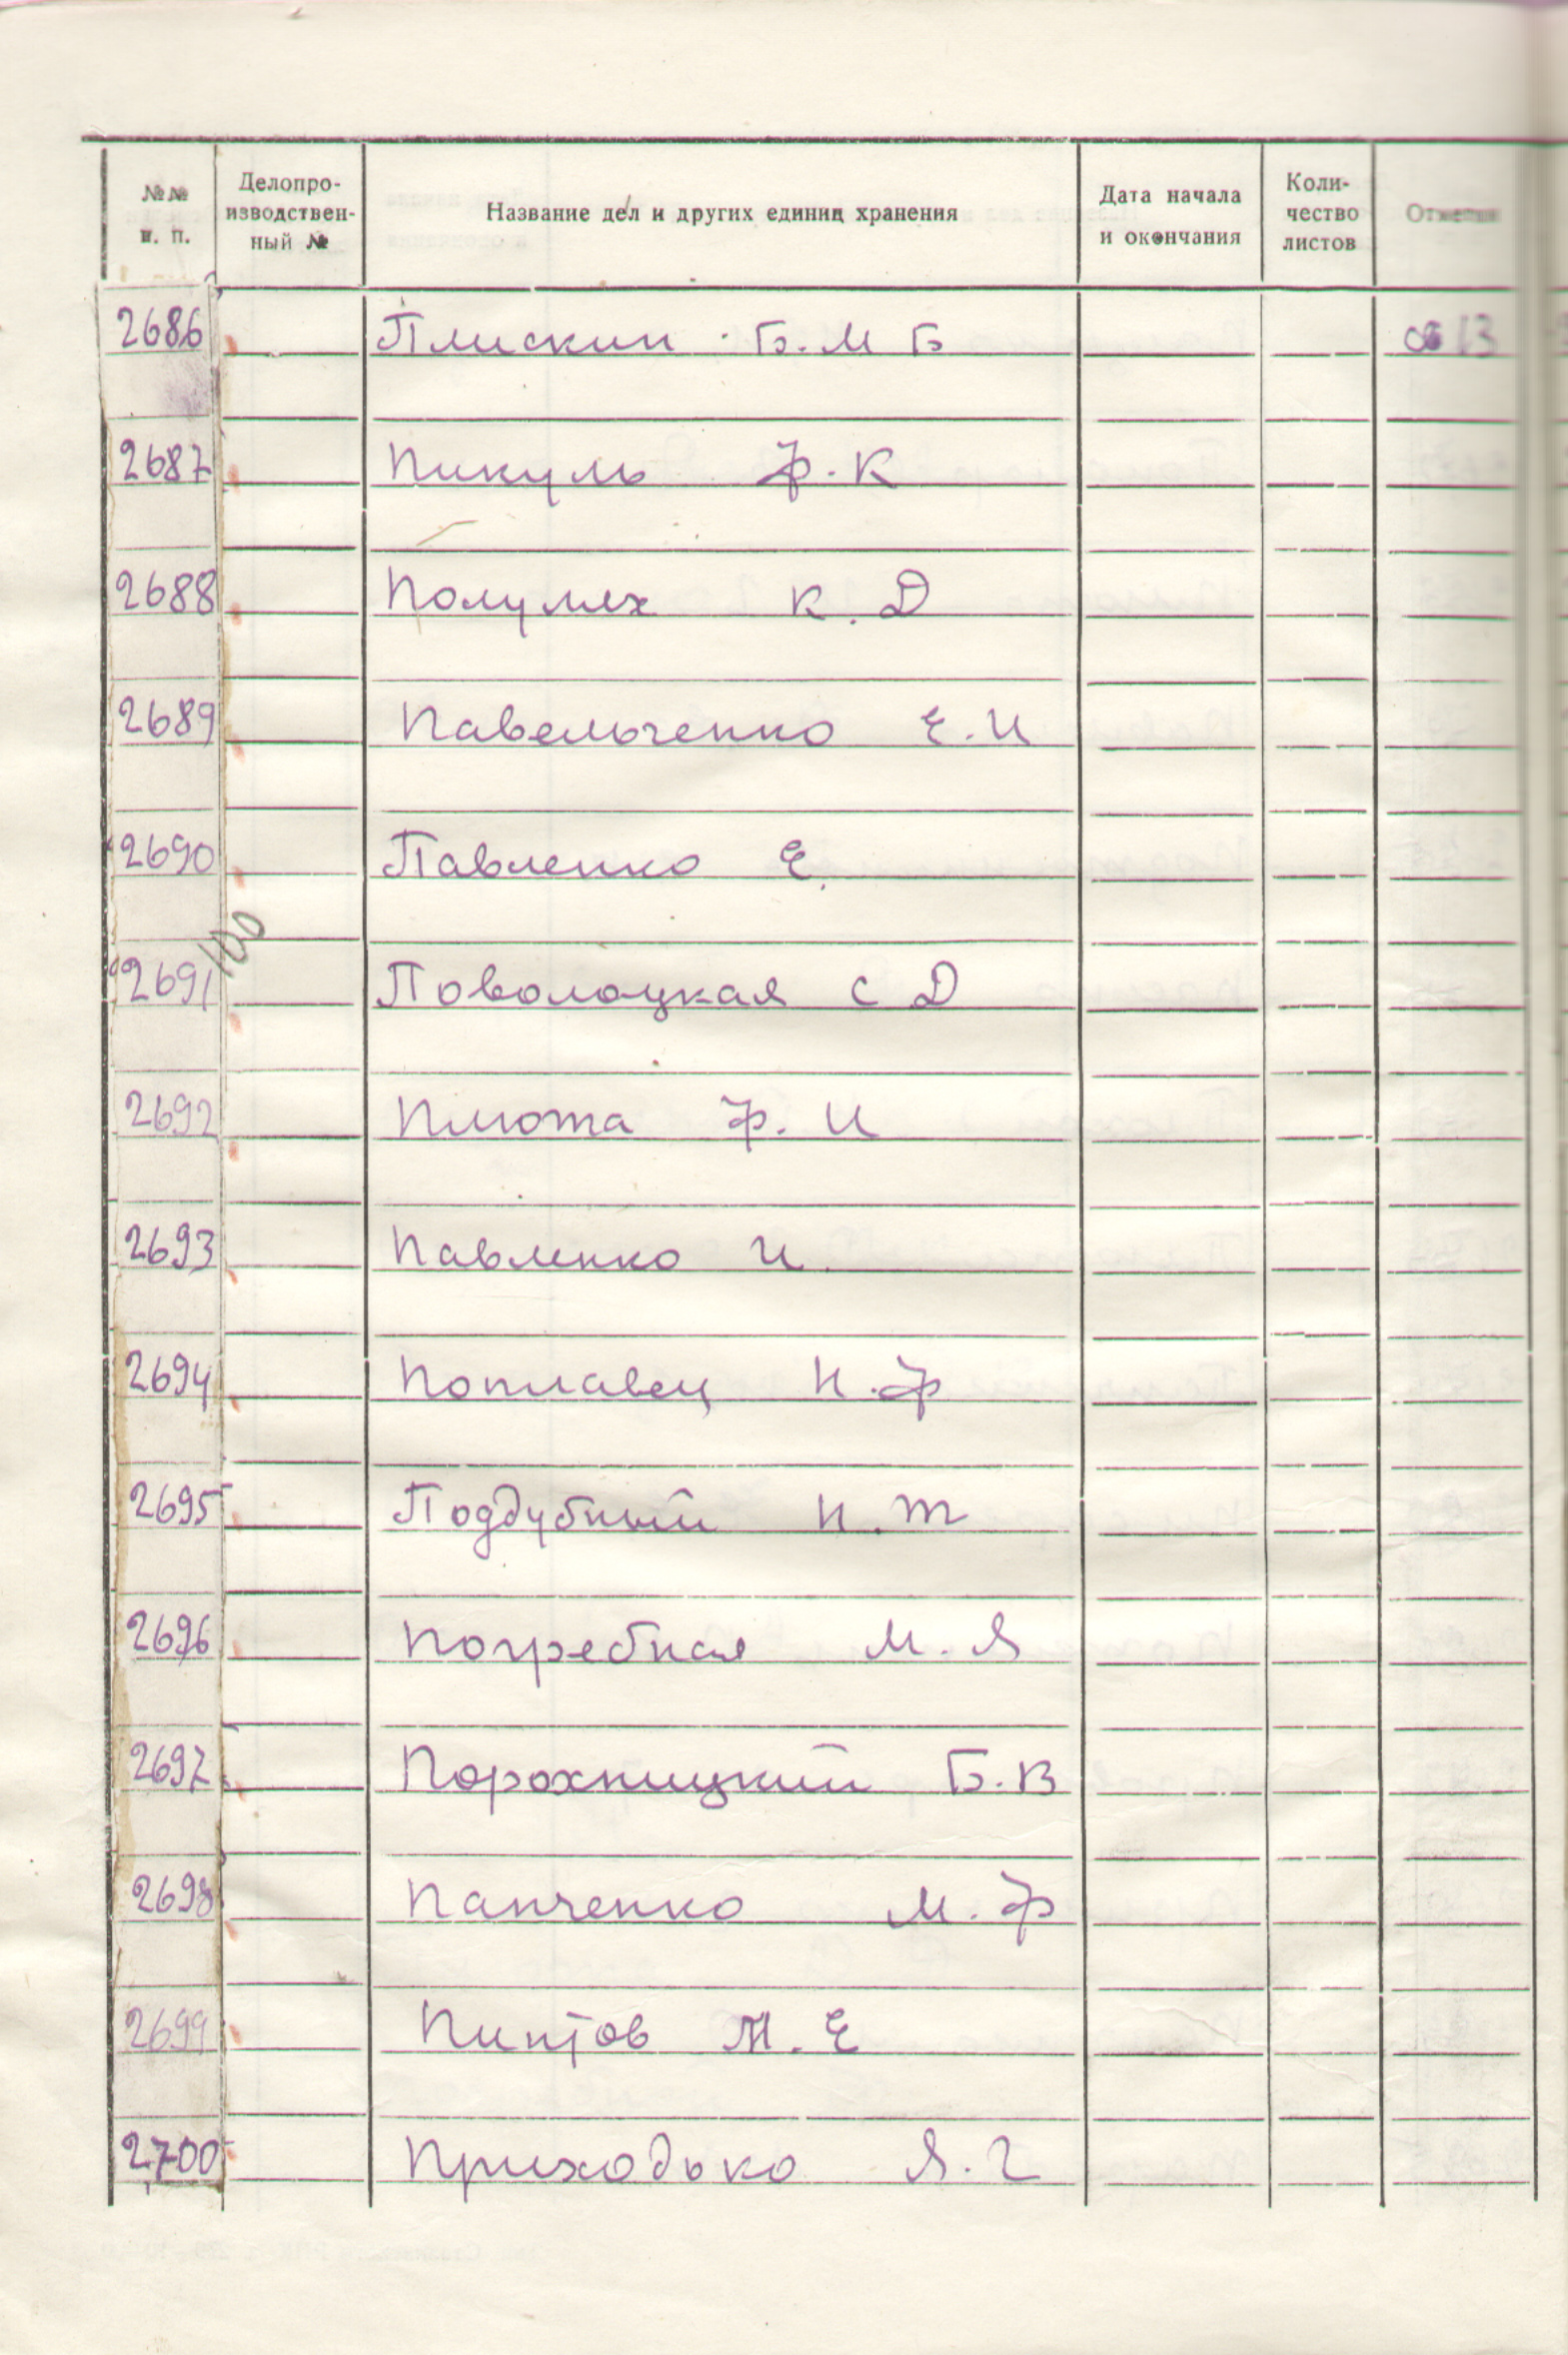 №№ п. п. Делопро-изводствен-ный № Название дел и других единиц хранения Дата начала и окончания Коли-чество листов Отметки
2686 Плискин Б.М Б
2687 Пикуль Ф.К
2688 К.Д
2689 Павельченко Е.И
2690 Павленко Е.
100
2691 Поволоцкая С Д
2692 Плюта Ф.И
2693 Павленко И.
2694 Поплавец Н.Ф
2695 Поддубный Н.Т
2696 Погребная М.Я
2697 Порохницкий Б.В
2698 Панченко М.Ф
2699 Пинтов М.Е
2700 Приходько Я.Г